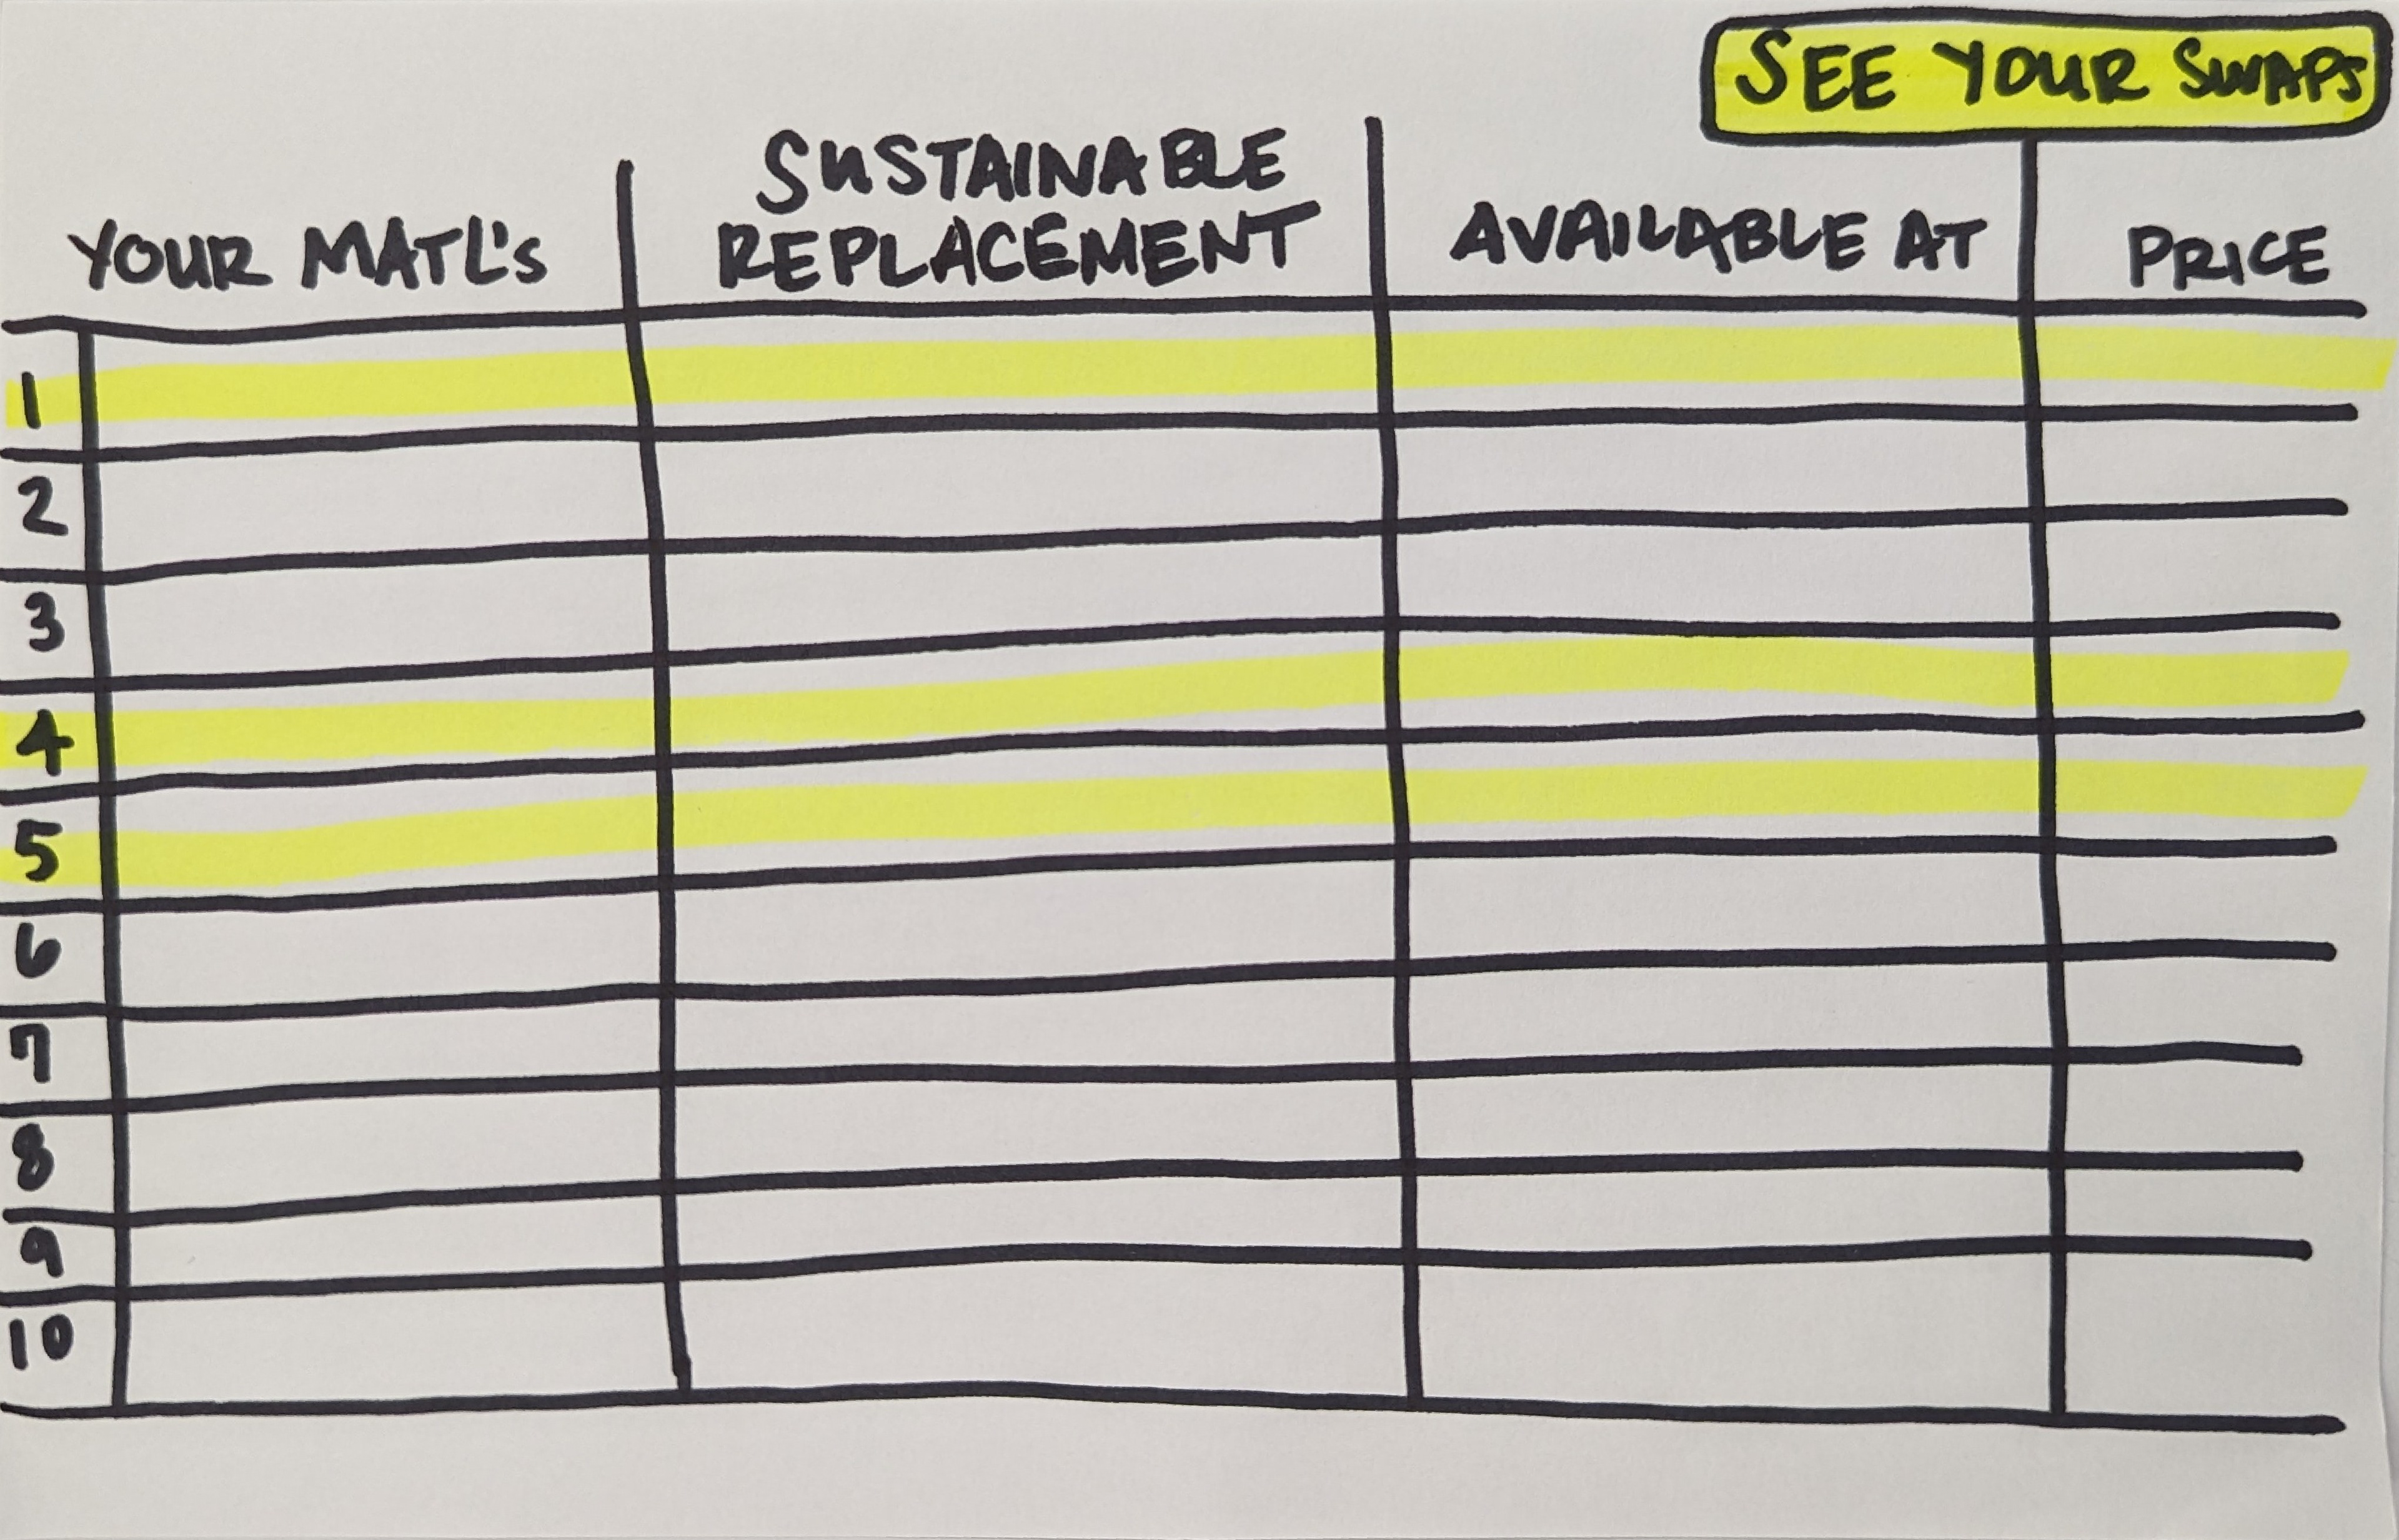 SEE YOUR SWAPS
YOUR MATL's
SUSTAINABLE
REPLACEMENT
AVAILABLE AT
PRICE
1
2
3
4
5
6
7
8
9
10